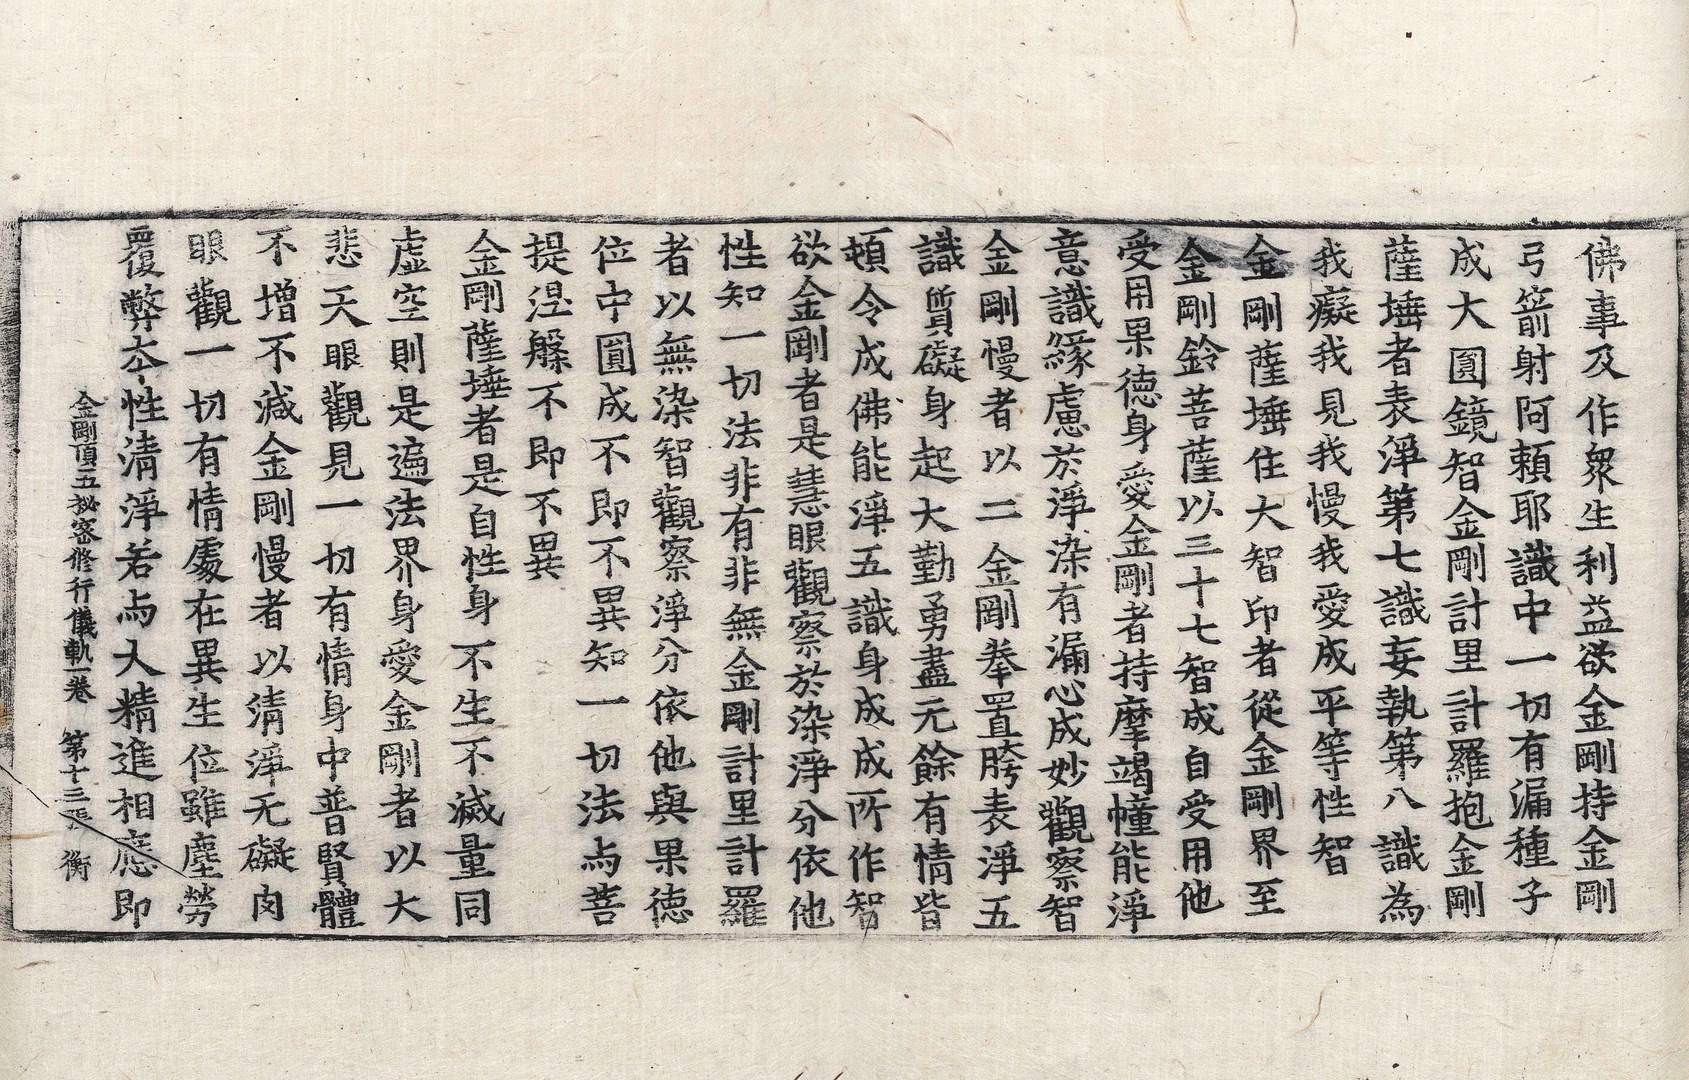 佛事及作衆生利益欲金剛持金剛
弓箭射阿頼耶識中一切有漏種子
成大圎鏡智金剛計里計羅抱金剛
薩埵者表淨第七識妄執第八識為
我癡我見我慢我愛成平等性智
金剛薩埵住大智印者從金剛界至
金剛鈴菩薩以三十七智成自受用他
受用果徳身愛金剛者持摩竭幢能淨
意識緣慮於淨染有漏心成妙觀察智
金剛慢者以二金剛拳置胯表淨五
識質礙身起大勤勇盡无餘有情皆
頓令成佛能淨五識身成成所作智
欲金剛者是慧眼觀察於染淨分依他
性知一切法非有非無金剛計里計羅
者以無染智觀察淨分依他與果徳
位中圎成不即不異知一切法与菩
提涅槃不即不異
金剛薩埵者是自性身不生不滅量同
虛空則是遍法界身愛金剛者以大
悲天眼觀見一切有情身中普賢體
不增不減金剛慢者以清淨无礙肉
眼觀一切有情處在異生位雖塵勞
覆弊夲性清淨若与大精進相應即
金剛頂五祕密修行儀軌一卷 第十三張 衡